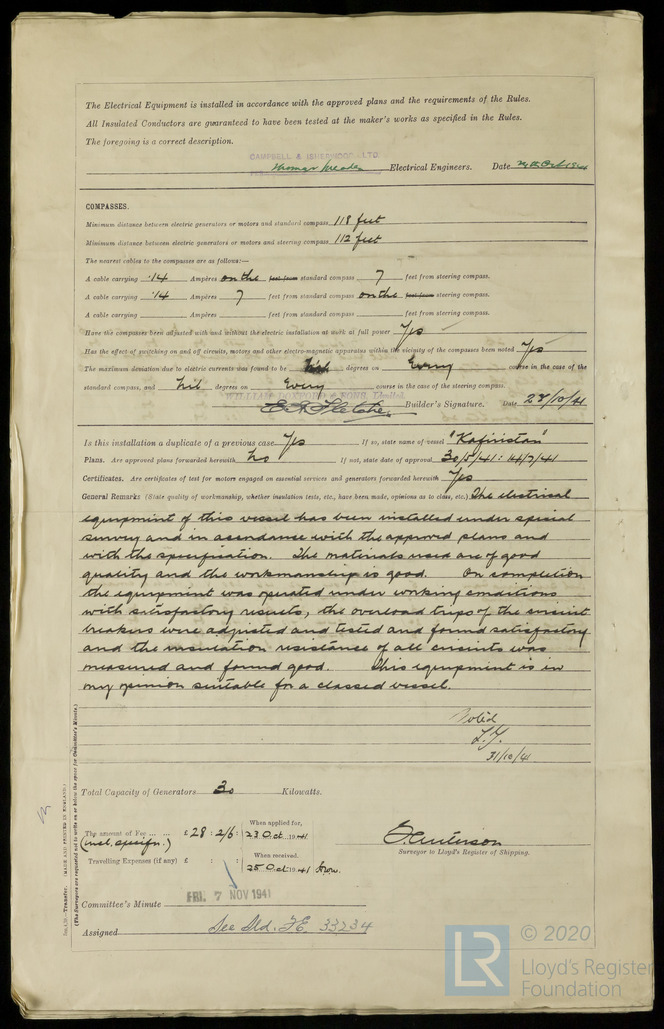 The Electrical Equipment is installed in accordance with the approved plans and the requirements of the Rules.
All Insulated Conductors are guaranteed to have been tested at the maker's works as specified in the Rules.
The foregoing is a correct description.
CAMPBELL & ISHERWOOD LTD.
Electrical Engineers. Date
COMPASSES.
Minimum distance between electric generators or motors and standard compass 118 feet
Minimum distance between electric generators or motors and steering compass 112 feet
The nearest cables to the compasses are as follows:—
A cable carrying .14 Ampères on the feet from standard compass 7 feet from steering compass.
A cable carrying .14 Ampères 7 feet from standard compass on the feet from steering compass.
A cable carrying Ampères feet from standard compass feet from steering compass.
Have the compasses been adjusted with and without the electric installation at work at full power Yes
Has the effect of switching on and off circuits, motors and other electro-magnetic apparatus within the vicinity of the compasses been noted Yes
The maximum deviation due to electric currents was found to be degrees on Every course in the case of the
standard compass, and Nil degrees on Every course in the case of the steering compass.
WILLIAM DOXFORD & SONS, Limited.
E. A. Fletcher Builder's Signature. Date 28/10/41
Is this installation a duplicate of a previous case Yes If so, state name of vessel "Kafiristan"
Plans. Are approved plans forwarded herewith No If not, state date of approval 30/5/41: 14/7/41
Certificates. Are certificates of test for motors engaged on essential services and generators forwarded herewith Yes
General Remarks (State quality of workmanship, whether insulation tests, etc., have been made, opinions as to class, etc.) The electrical
equipment of this vessel has been installed under special
survey and in accordance with the approved plans and
with the specification. The materials used are of good
quality and the workmanship is good. On completion
the equipment was operated under working conditions
with satisfactory results, the overload trips of the circuit
breakers were adjusted and tested and found satisfactory
and the insulation resistance of all circuits was
measured and found good. This equipment is in
my opinion suitable for a classed vessel.
Noted
31/10/41
Total Capacity of Generators 30 Kilowatts.
The amount of Fee ... ... £ 28 : 2/6 : When applied for, 23 Oct 1941
(incl. specifn.)
Travelling Expenses (if any) £ : : When received, 25 Oct 1941
Surveyor to Lloyd's Register of Shipping.
Committee's Minute FRI. 7 NOV 1941
Assigned See Sld. F.E. 33234
(MADE AND PRINTED IN ENGLAND.)
(The Surveyors are requested not to write on or below the space for Committee's Minute.)
© 2020
LR
Lloyd's Register
Foundation